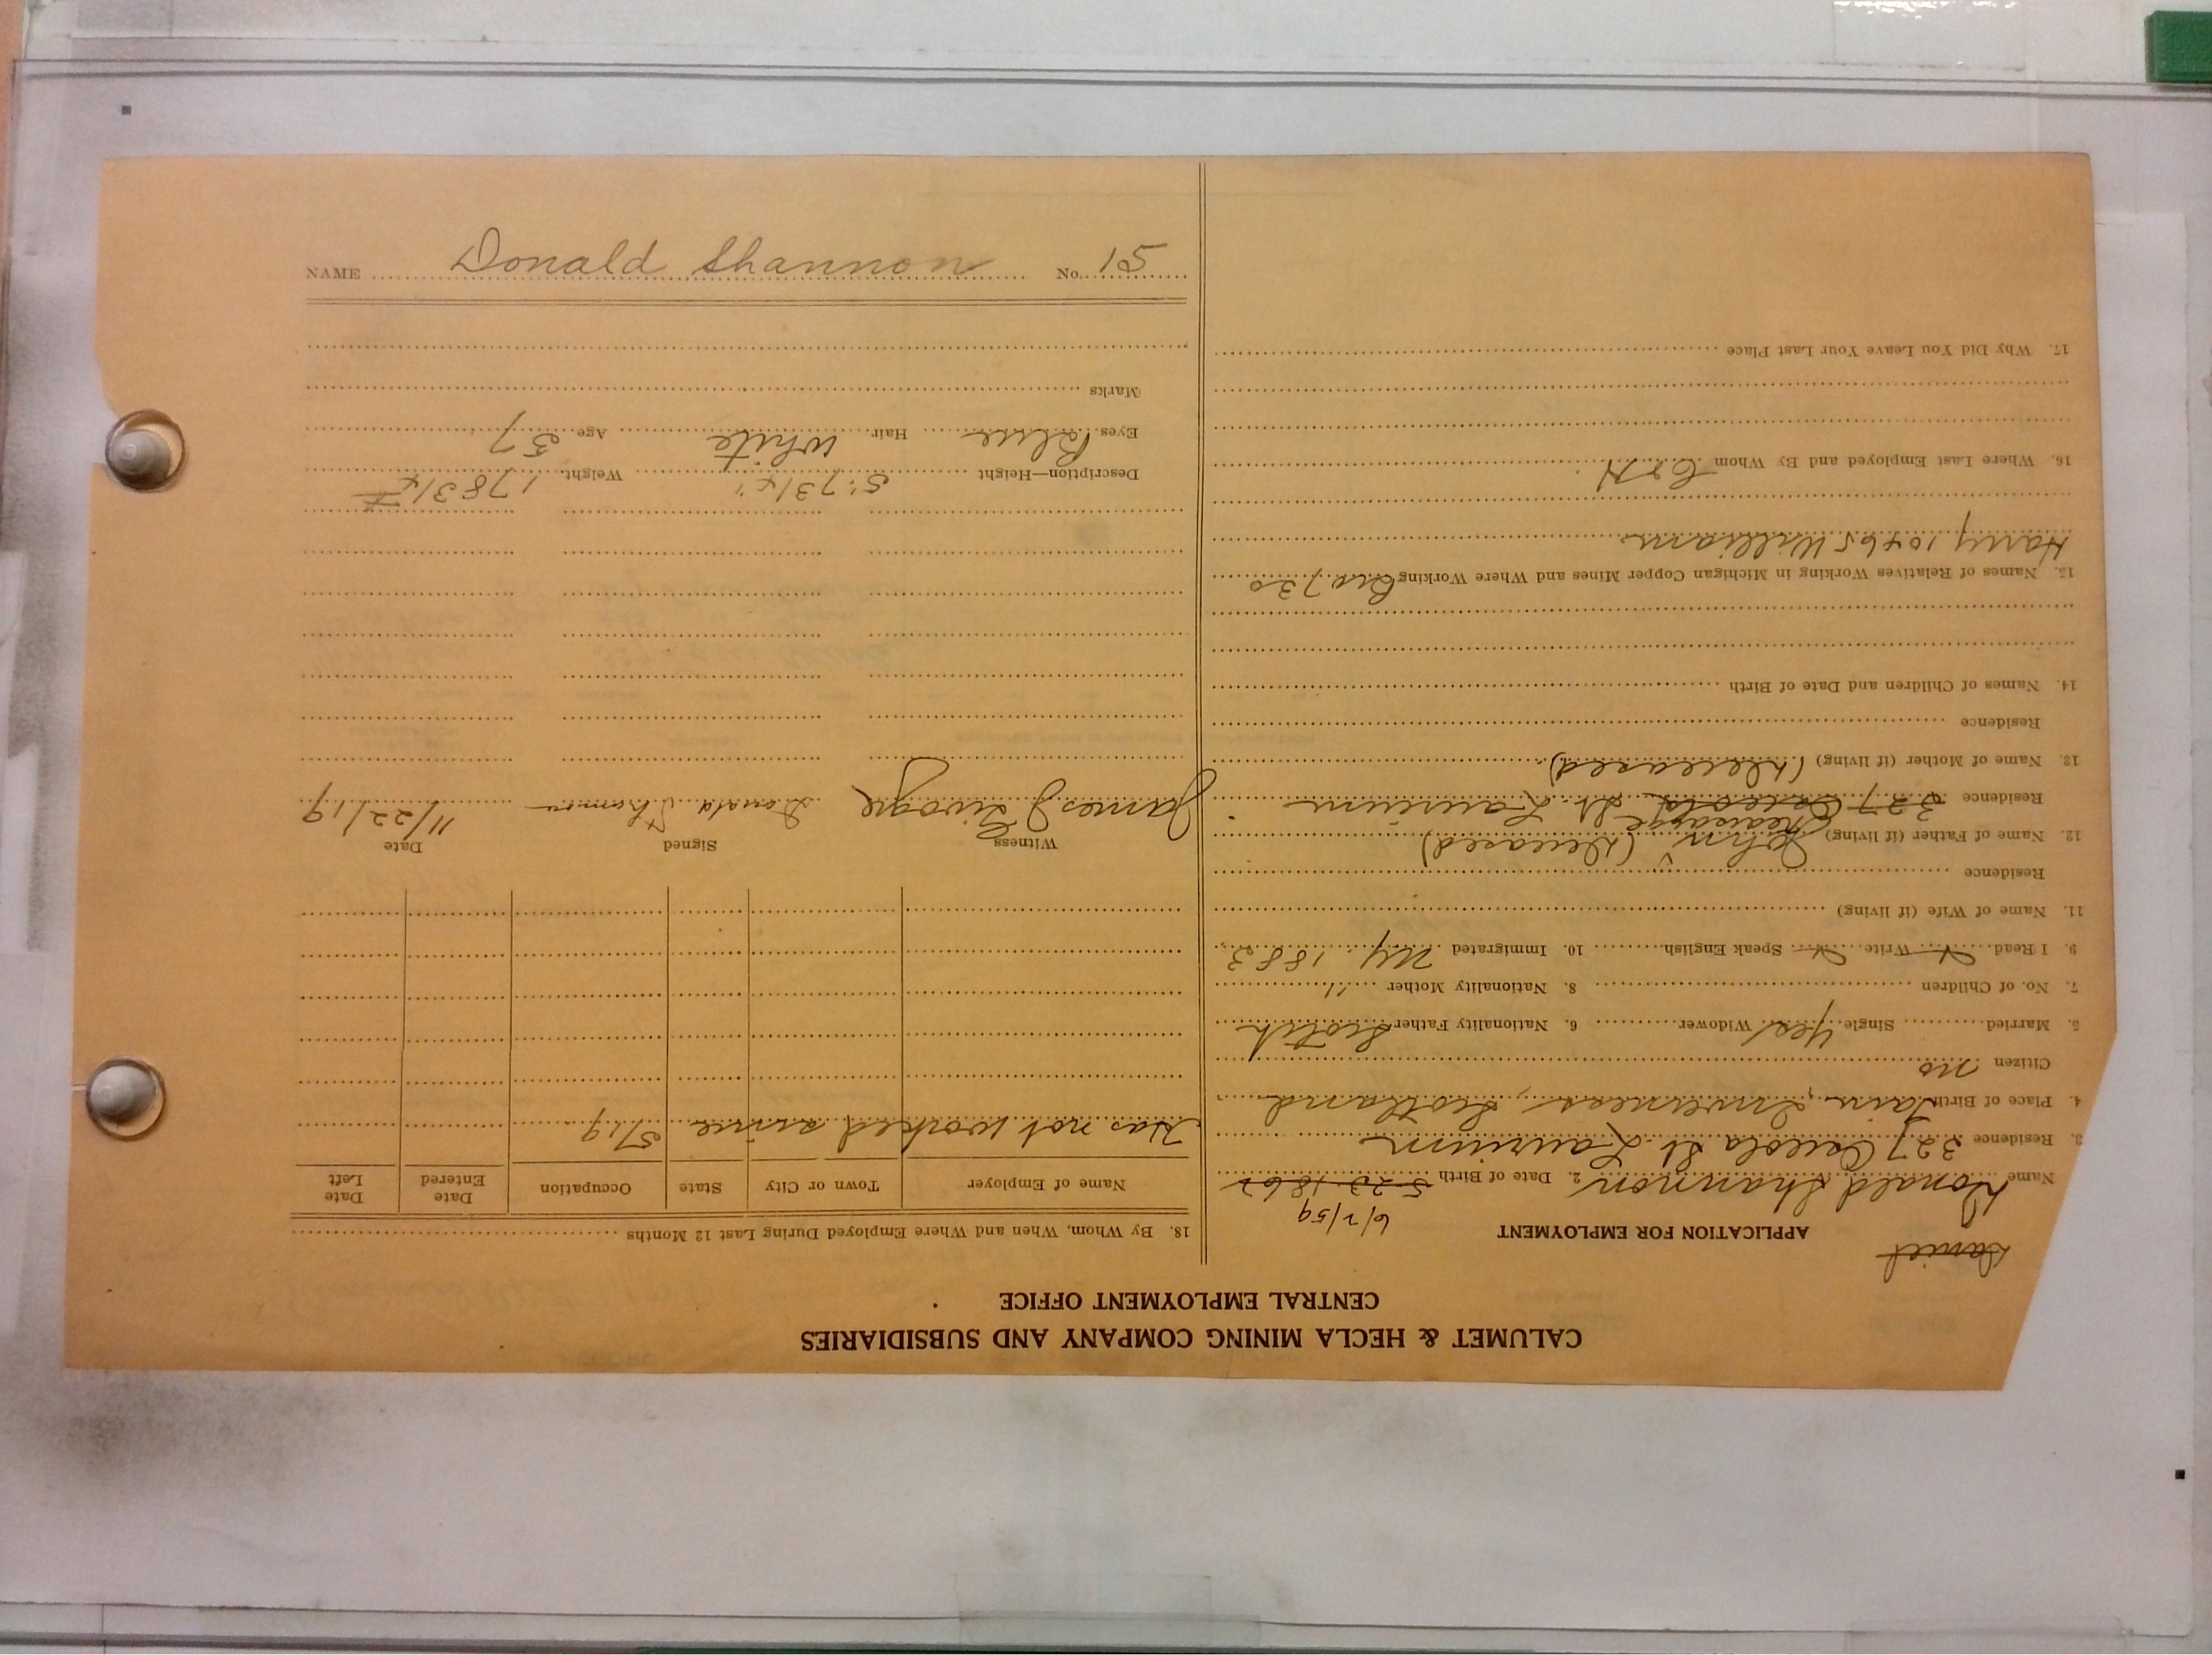 CALUMET & HECLA MINING COMPANY AND SUBSIDIARIES
CENTRAL EMPLOYMENT OFFICE
Daniel
APPLICATION FOR EMPLOYMENT
6/2/59
Name Donald Shannon 2. Date of Birth 5-23-1862
3. Residence 327 Osceola St. Laurium
4. Place of Birth Tain, Inverness, Scotland
Citizen no
5. Married Single Yes Widower 6. Nationality Father Scotch
7. No. of Children 8. Nationality Mother "
9. I Read X Write X Speak English 10. Immigrated NY. 1883
11. Name of Wife (if living)
Residence
12. Name of Father (if living) John (Deceased)
Residence 327 Osceola St. Laurium
13. Name of Mother (if living) (Deceased)
Residence
14. Names of Children and Date of Birth
15. Names of Relatives Working in Michigan Copper Mines and Where Working 730
Harry 10465 William
16. Where Last Employed and By Whom C & H
17. Why Did You Leave Your Last Place
18. By Whom, When and Where Employed During Last 12 Months
Name of Employer Town or City State Occupation Date Entered Date Left
Has not worked since 5/19
Witness Signed Date
James Donald Shannon 11/22/19
Description—Height 5' 7 3/4" Weight 178 3/4 #
Eyes Blue Hair White Age 57
Marks
NAME Donald Shannon No. 15